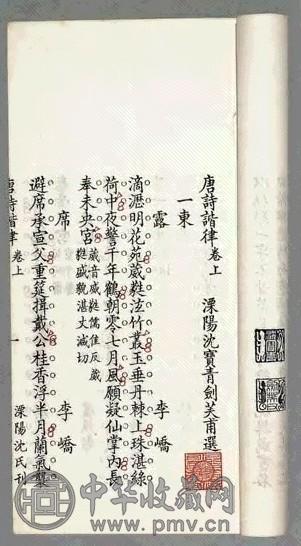 唐詩諧律 卷上 溧陽沈寶青劍芙甫選
一東
露 李嶠
滴瀝明花苑葳蕤泫竹叢玉垂丹棘上珠湛綠
荷中夜警千年鶴朝零七月風願凝仙掌內長
奉未央宮 葳音威蕤儒隹反葳
蕤盛貌湛丈減切
席 李嶠
避席承宣父重筵揖戴公桂香浮半月蘭氣襲
唐詩諧律 卷上 一 溧陽沈氏刊
中华收藏网
www.pmv.cn